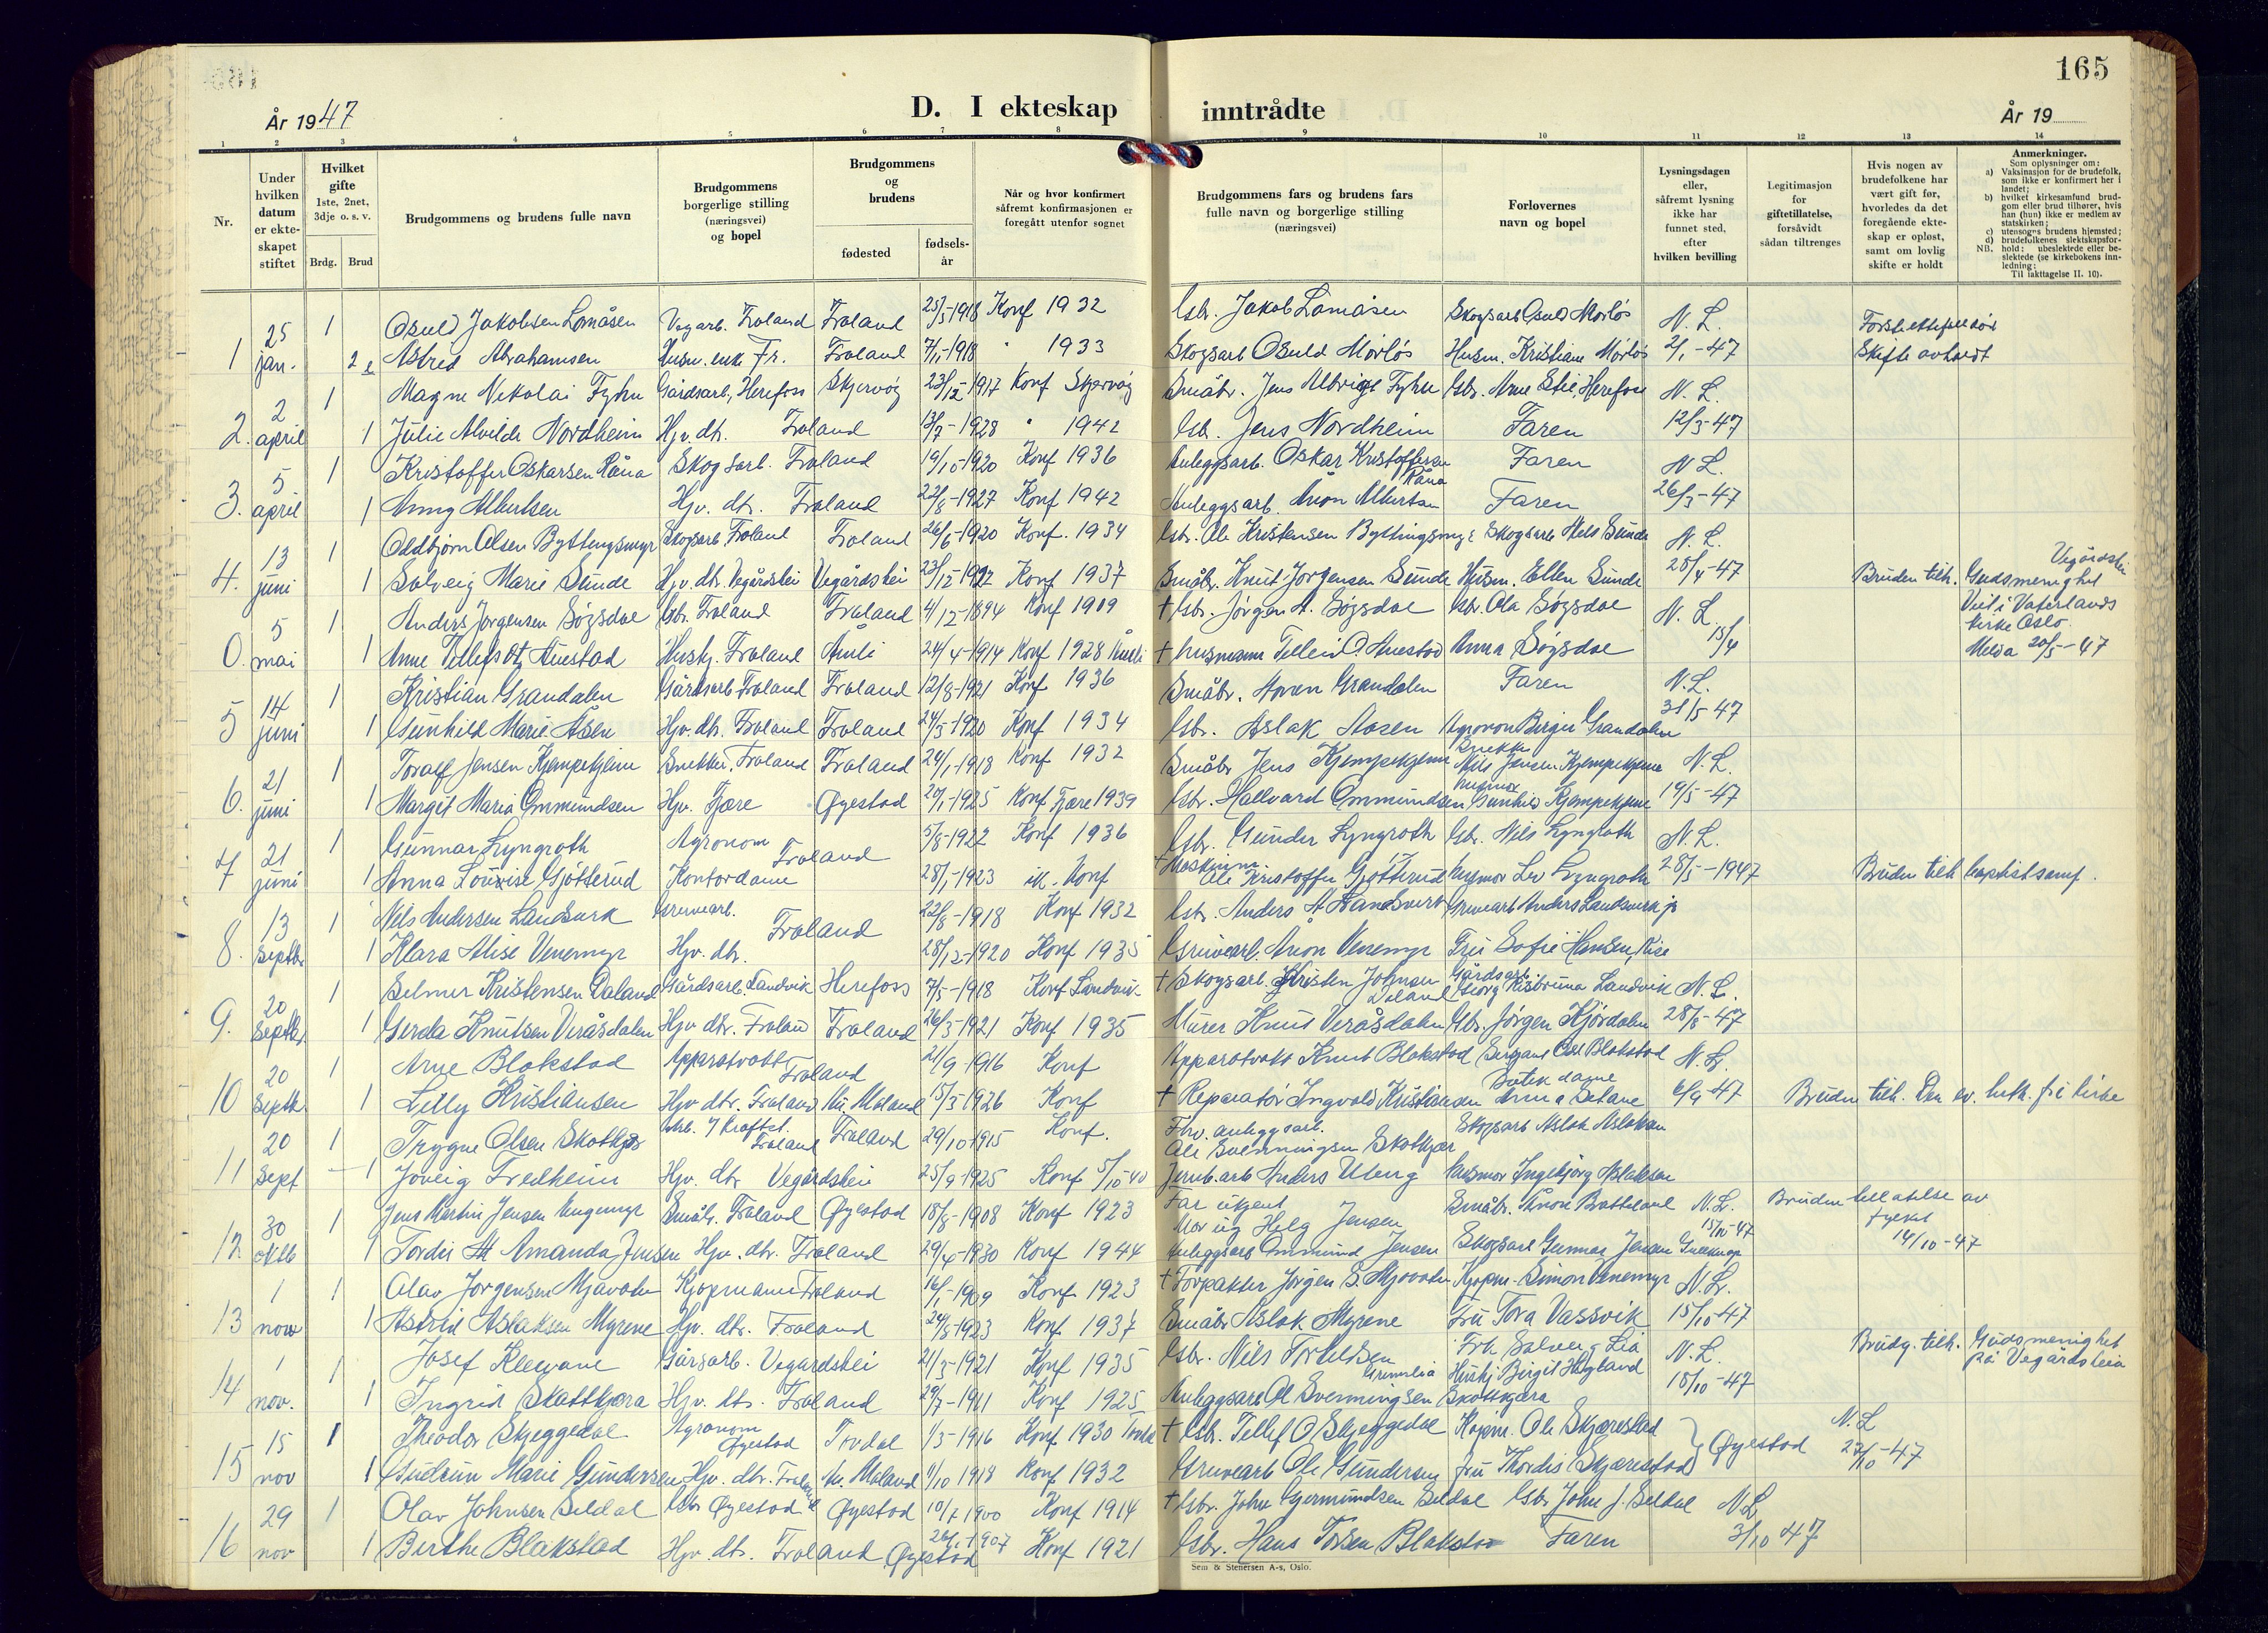 165
År 1947
D. I ekteskap inntrådte
År 19
1 2 3 4 5 6 7 8 9 10 11 12 13 14
Nr.
Under hvilken datum er ekteskapet stiftet
Hvilket gifte 1ste, 2net, 3dje o. s. v.
Brdg. Brud
Brudgommens og brudens fulle navn
Brudgommens borgerlige stilling (næringsvei) og bopel
Brudgommens og brudens
fødested
fødselsår
Når og hvor konfirmert såfremt konfirmasjonen er foregått utenfor sognet
Brudgommens fars og brudens fars fulle navn og borgerlige stilling (næringsvei)
Forlovernes navn og bopel
Lysningsdagen eller, såfremt lysning ikke har funnet sted, efter hvilken bevilling
Legitimasjon for giftetillatelse, forsåvidt sådan tiltrenges
Hvis nogen av brudefolkene har vært gift før, hvorledes da det foregående ekteskap er opløst, samt om lovlig skifte er holdt
Anmerkninger.
Som oplysninger om:
a) Vaksinasjon for de brudefolk, som ikke er konfirmert her i landet;
b) hvilket kirkesamfund brudgom eller brud tilhører, hvis han (hun) ikke er medlem av statskirken;
c) utensogns brudens hjemsted;
d) brudefolkenes slektskapsforhold; ubeslektede eller beslektede (se kirkebokens innledning;
NB. Til iakttagelse II. 10).
25 1 Osuld Jakobsen Lomåsen Vegarb. Froland Froland 25/5-1918 Konf 1932 Gbr. Jakob Lomåsen Skogsarb Osuld Mørløs N. L.
1 jan. 2 Astred Abrahamsen Husm. enk. Fr. Froland 1918 " 1933 Skogsarb Osuld Mørløs Husm. Kristiane Mørløs 2/1-47 Skifte avholdt
2 1 Magne Nikolai Fyhn Gårdsarb., Herefoss Skjervøy 23/12-1917 Konf Skjervøy Småbr. Jens Fyhn Gbr. Arne Stie, Herefoss N. L.
2. april 1 Julie Alvilde Nordheim Hjv. dtr. Froland 13/7-1928 " 1942 Gb. Jens Nordheim Faren 12/3-47
5 1 Kristoffer Oskarsen Råna Skogsarb. Froland 19/10-1920 Konf 1936 Anleggsarb. Oskar Kristoffersen Råna Faren N L.
3. april 1 Anny Albertsen Hjv. dtr. Froland 22/8-1927 Konf 1942 Anleggsarb. Aron Albertsen Faren 26/3-47
13 1 Oddbjørn Olsen Byttingsmyr Skogsarb Froland Froland 26/6-1920 Konf. 1934 Gbr. Ole Kristensen Byttingsmyr Skogsarb Nels Sunde N. L.
4. juni 1 Solveig Marie Sunde Hjv. dtr. Vegårdshei Vegårdshei 23/12-1922 Konf 1937 Småbr. Knut Jorgensen Sunde Husm. Ellen Sunde 28/4-47 Bruden tilh. Gudsmenighet Vegårdshei
5 1 Anders Jørgensen Søgsdal Gbr. Froland Froland 4/12-1894 Konf 1909 + Gbr. Jørgen A. Søgsdal Gbr. Ola Søgsdal N. L. Viet i Vaterlands kirke Oslo.
0. mai 1 Anne Tellefsdtr Auestad Hushj. Froland Åmli 24/4-1914 Konf 1928 Åmli + husmann Tellef O Auestad Anna Søgsdal 15/4 Melda 20/5-47
14 1 Kristian Grandalen Gårdsarb Froland Froland 12/8-1921 Konf 1936 Småbr. Grandalen Faren N. L.
5 juni 1 Gunhild Marie Åsen Hjv. dtr. Froland Froland 24/3-1920 Konf 1934 Gbr. Aslak Aasen Agronom Birger Grandalen 31/5-47
21 1 Toralf Jensen Kjempekjenn Snekker, Froland Froland 24/1-1918 Konf 1932 Småbr Jens Kjempekjenn Snekker Nils Jensen Kjempekjenn N. L.
6. juni 1 Margit Maria Ommundsen Hjv. Fjære Øyestad 1925 Konf Fjære 1939 Gbr. Hallvard Ommundsen husmor Gunhild Kjempekjenn 19/5-47
21 1 Gunnar Lyngroth Agronom Froland 5/8-1922 Konf 1936 Gbr. Gunder Lyngroth Gbr. Nils Lyngroth N. L.
7 juni 1 Anna Louise Gjøtterud Kontordame 28/1-1923 ik. Konf + Maskinm. Ole Kristoffer Gjøtterud husmor Lyngroth 28/5-1947 Bruden tilh baptistsamf.
13 1 Nils Andersen Landsverk Gruvearb. Froland 22/8-1918 Konf 1932 Gbr. Anders A Landsverk Gruvearb Anders Landsverk jr
8. septbr 1 Klara Alise Venemyr Hjv. dtr. 28/12-1920 Konf 1935 Gruvearb. Aron Venemyr Fru Sofie Hansen, Rise
20 1 Selmer Kristensen Daland Gårdsarb. Landvik Herefoss 7/5-1918 Konf Landvik + Skogsarb. Kristen Johnsen Daland Gårdsarb Georg Landvik N. L.
9. septbr. 1 Gerda Knutsen Veråsdalen Hjv dtr. Froland Froland 26/3-1921 Konf 1935 Murer Knut Veråsdalen Gbr. Jørgen Kjørdalen 28/8-47
20 1 Arne Blakstad Apparatvakt Froland 21/9-1916 Konf Apparatvakt Knut Blakstad Sersjant Blakstad N. L.
10 septbr. 1 Lilly Kristiansen Hjv dtr. Froland Au. Moland 15/3-1926 Konf + Reparatør Ingvald Kristiansen Butikdame Anna 6/9-47 Bruden tilh. Den ev. luth. frikirke
20 1 Trygve Olsen Skotkjær Arb. v/ kraftst. Froland Froland 29/10-1915 Konf. Fhv. anleggsarb. Ole Svenningsen Skotkjær Skogsarb Aslak Aslaksen
11 sept 1 Jøveig Fredheim Hjv. dtr Vegårdshei 25/9-1925 Konf 5/10-40 Jernb.arb Anders Uberg husmor Ingebjørg Aslaksen
30 1 Jens Martin Jensen Engemyr Småbr. Froland Øyestad 18/8-1908 Konf 1923 Far ukjent Mor ug Helg Jensen Småbr. Bratteland N. L. Bruden tillatelse av fylket
12 oktb 1 Tordis Amanda Jensen Hjv. dtr. Froland 29/4-1930 Konf 1944 Anleggsarb Ommund Jensen Skogsarb Gunnar Jensen 15/10-47 14/10-47
1 1 Olav Jørgensen Mjåvatn Kjøpmann Froland 16/1-1909 Konf 1923 + Forpakter Jørgen S. Mjåvatn Kjøpm. Simon Venemyr N. L.
13 nov 1 Astrid Aslaksen Myrene Hjv. dtr. Froland 24/8-1923 Konf 1937 Småbr Aslak Myrene Fru Tora Vassvik 15/10-47
1 1 Josef Kleivane Gårdsarb. Vegårdshei 21/3-1921 Konf 1935 Gbr. Nils Torkildsen Grimslia Frk Solveig Lia N. L. Brudg. tilh. Gudsmenighet på Vegårdsheia
14 nov. 1 Ingrid Skottkjæra Hjv. dtr. Froland 29/7-1911 Konf 1925 Anleggsarb Ol Svenningsen Skottkjæra Hushj Birgit Høgland 18/10-47
15 1 Theodor Skjeggedal Agronom Øyestad Tovdal 1/3-1916 Konf 1930 Tovdal + Gbr. Tellef O Skjeggedal Kjøpm. Ole Skjærestad Øyestad N. L
15 nov 1 Gudrun Marie Gundersen Hjv. dtr. Froland Au. Moland 9/10 1918 Konf 1932 Gruvearb Ole Gundersen fru Thordis Skjærestad 23/10-47
29 1 Olav Johnsen Seldal Gbr Øyestad Øyestad 10/7 1900 Konf 1914 + Gbr. John Gjermundsen Seldal Gbr John J. Seldal N. L
16 nov 1 Birthe Blakstad Hjv. dtr. Froland Øyestad 26/1-1907 Konf 1921 Gbr. Hans Torsen Blakstad Faren 3/10 47
Sem & Stenersen A-s, Oslo.